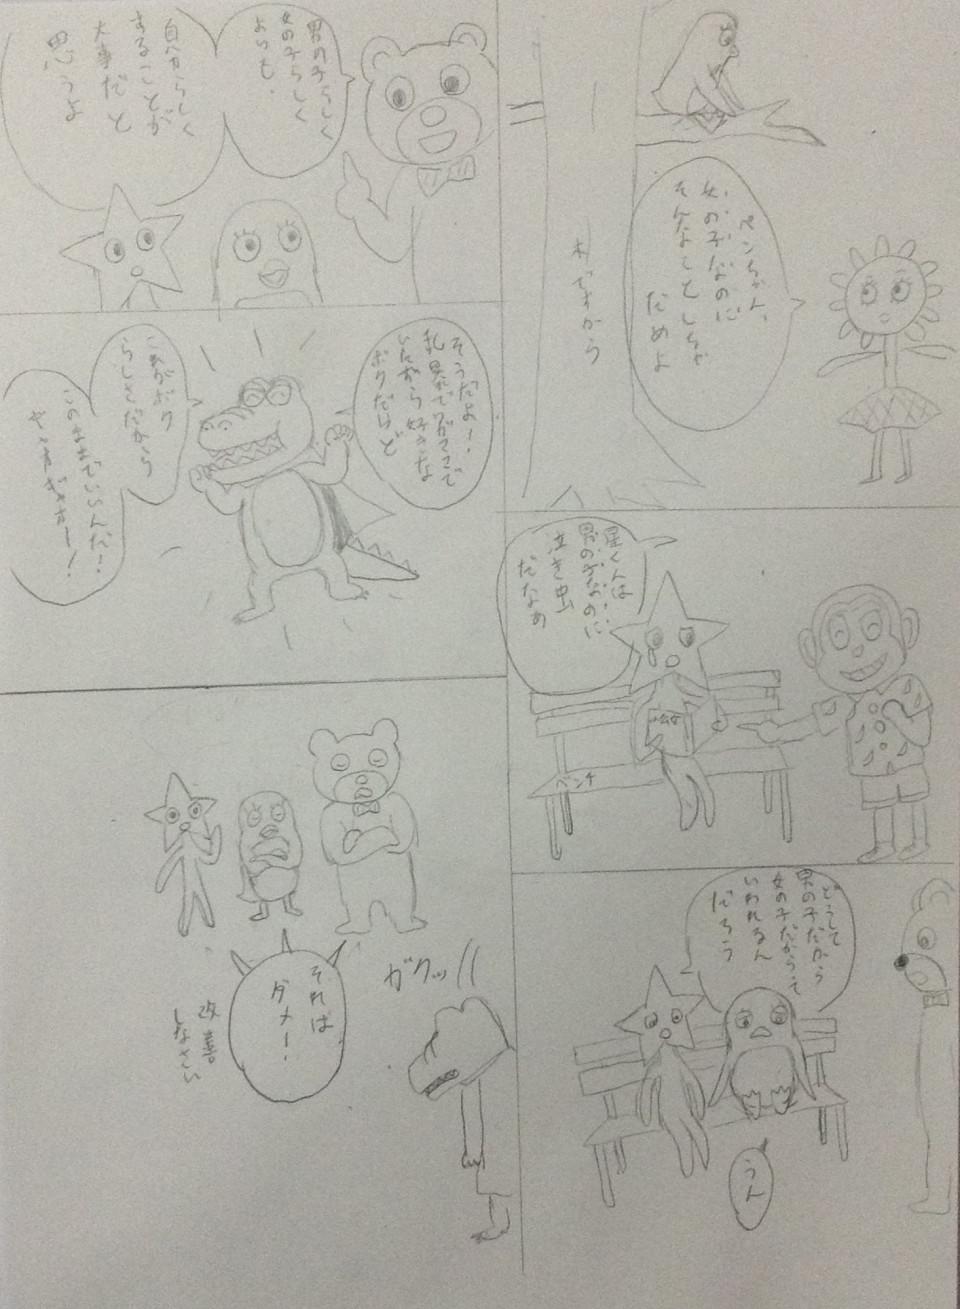 ペンちゃん、
女の子なのに
そんなことしちゃ
だめよ
木ですから
星くんは
男の子なのに
泣き虫
だなあ
ベンチ
どうして
男の子だから
女の子だからって
いわれるん
だろう
うん
男の子らしく
女の子らしく
よりも、
自分らしく
することが
大事だと
思うよ
そうだよ!
乱暴でワガママで
いじわる好きな
ボクだけど
これがボク
らしさだから
このままでいいんだ!
ガクッ
それは
ダメー!
改善
しなさい